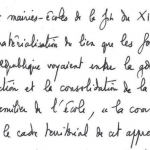 mairies-écoles de la fin du XI
matérialisation du lien que les fon
République voyaient entre la gé
ction et la consolidation de la
emier de l'École, "à la con
le cadre territorial de cet appre